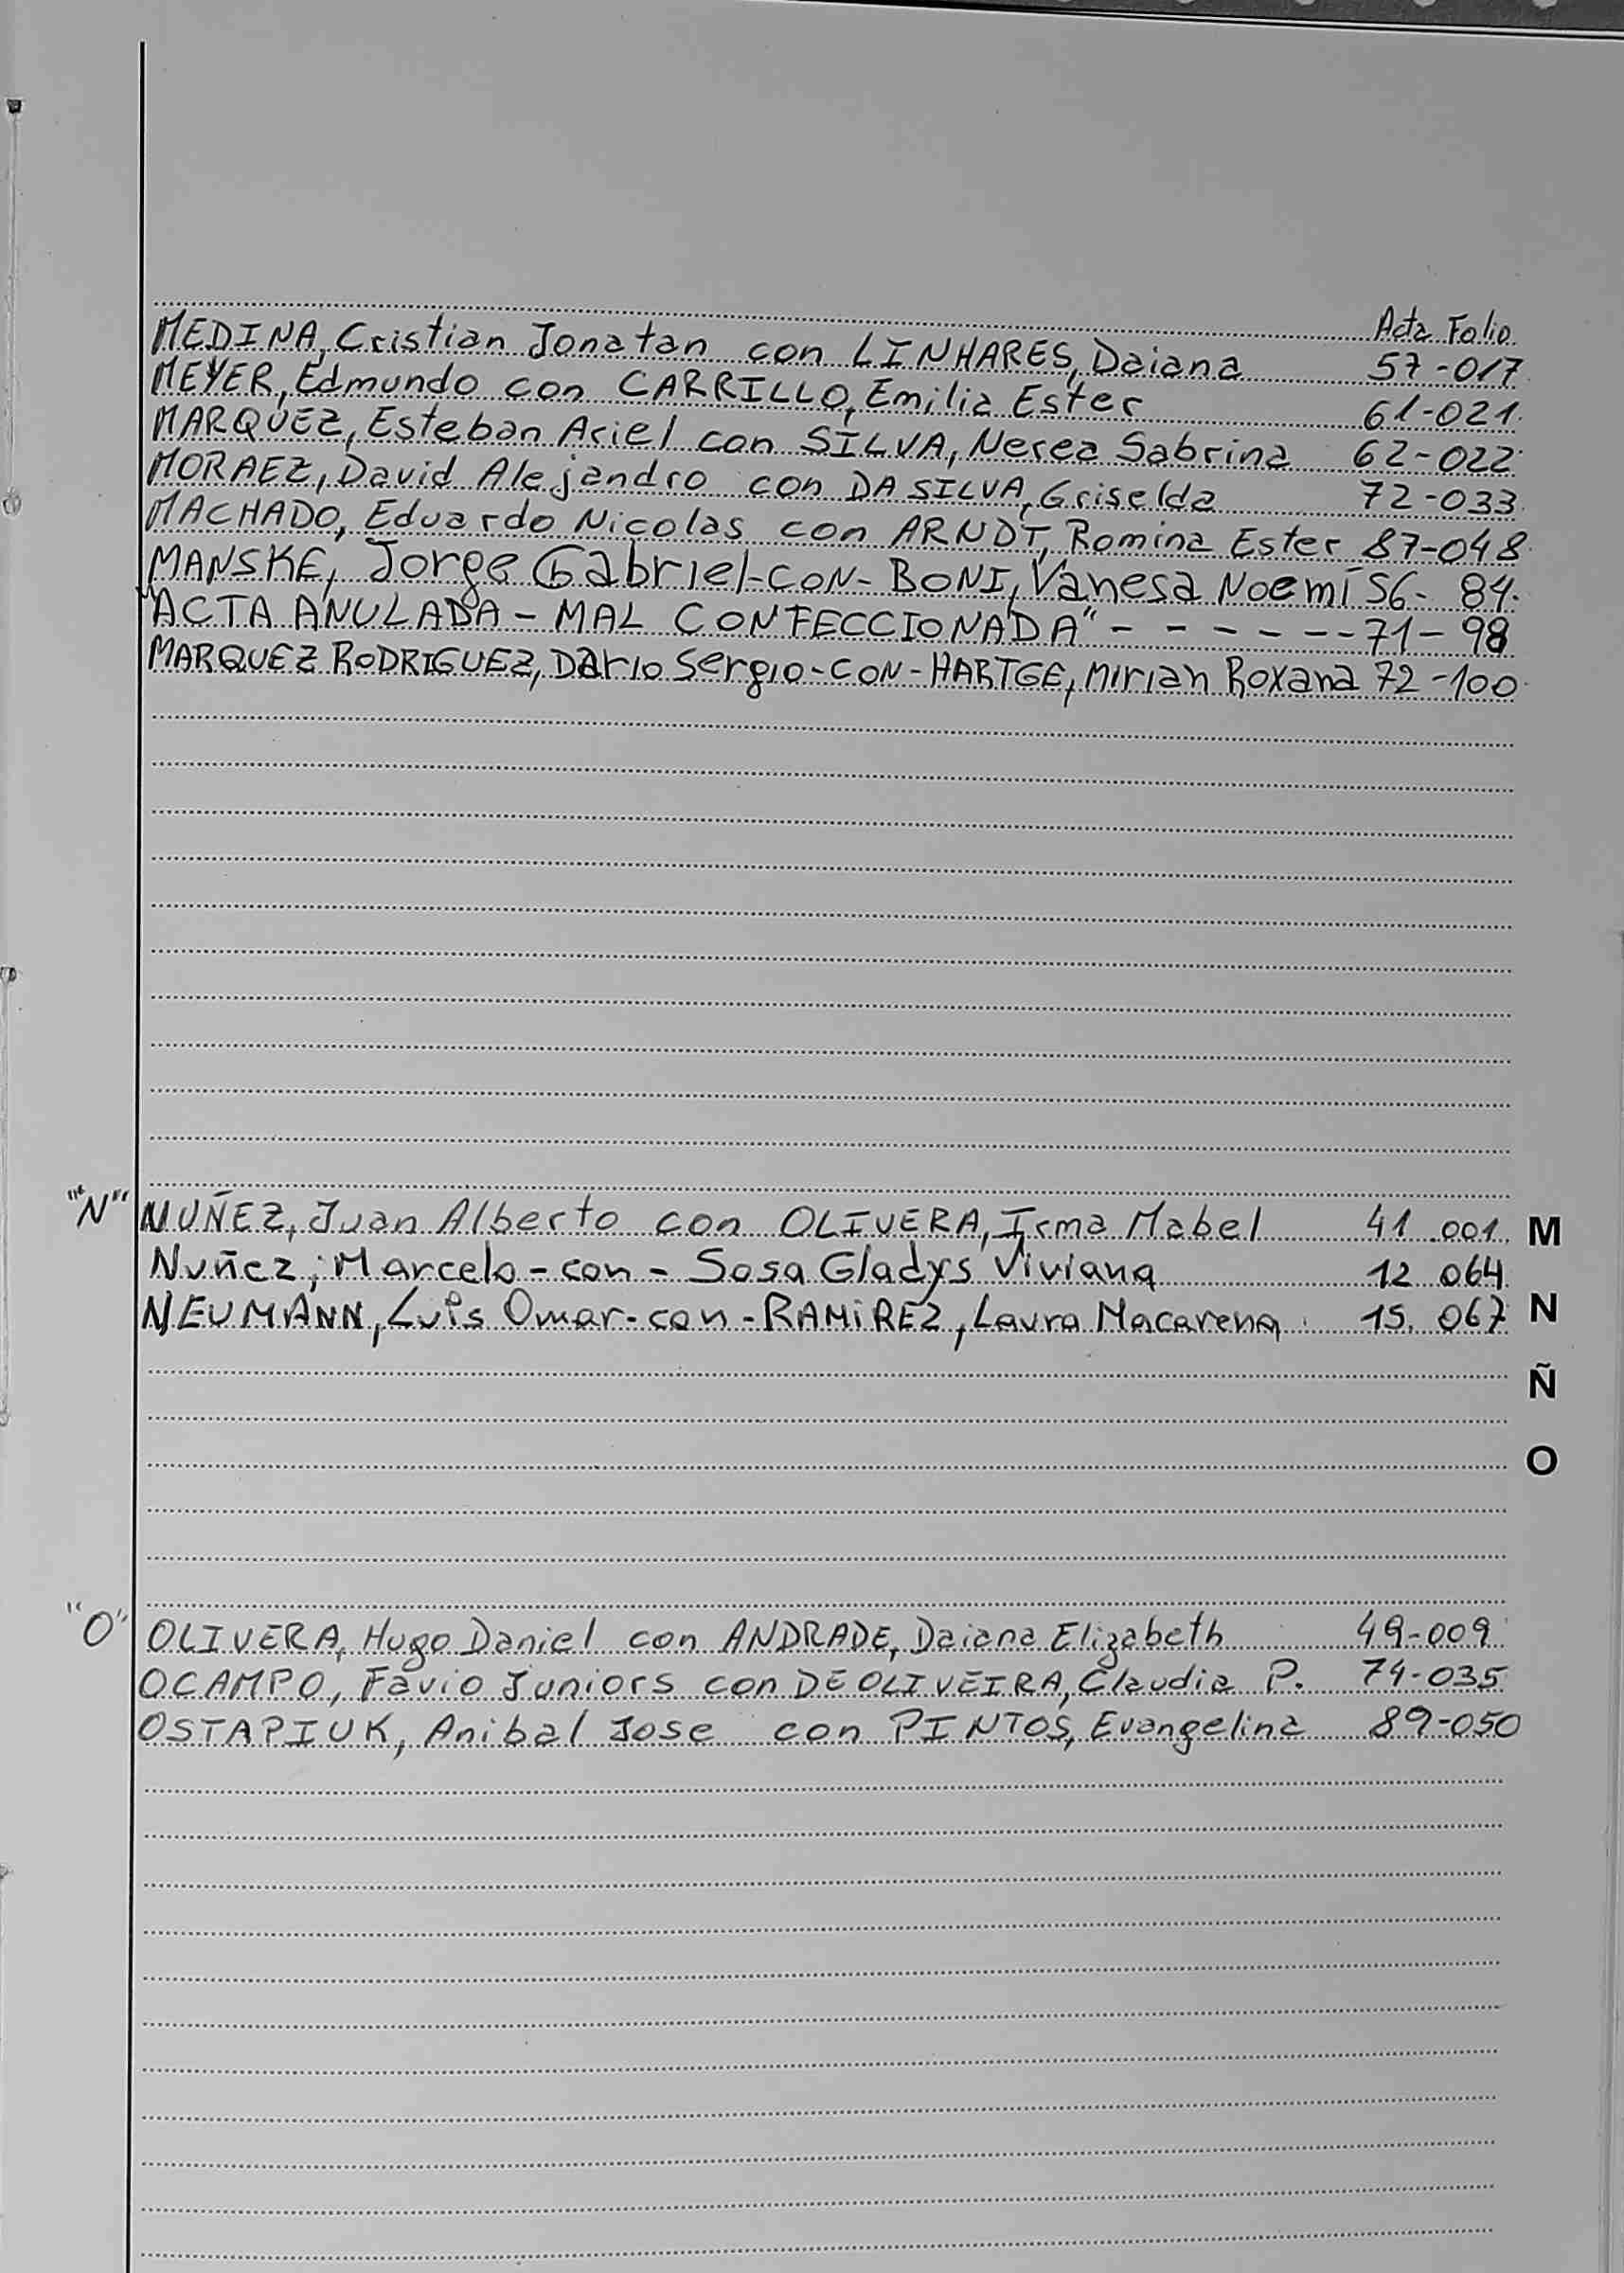 Acta Folio
MEDINA, Cristian Jonatan con LINHARES, Daiana 57-017
MEYER, Edmundo con CARRILLO, Emilia Ester 61-021
MARQUEZ, Esteban Ariel con SILVA, Nerea Sabrina 62-022
MORAEZ, David Alejandro con DA SILVA, Griselda 72-033
MACHADO, Eduardo Nicolas con ARNDT, Romina Ester 87-048
MANSKE, Jorge Gabriel-CON-BONI, Vanesa Noemí 56-84.
"ACTA ANULADA - MAL CONFECCIONADA" - - - - - - - 71-98
MARQUEZ RODRIGUEZ, Dario Sergio-CON-HARTGE, Mirian Roxana 72-100
"N" NUÑEZ, Juan Alberto con OLIVERA, Irma Mabel 41 001 M
Nuñez, Marcelo - con - Sosa Gladys Viviana 12 064
NEUMANN, Luis Omar-con-RAMIREZ, Laura Macarena. 15. 067 N
Ñ
O
"O" OLIVERA, Hugo Daniel con ANDRADE, Daiana Elizabeth 49-009
OCAMPO, Favio Juniors con DE OLIVEIRA, Claudia P. 74-035
OSTAPIUK, Anibal Jose con PINTOS, Evangelina 89-050